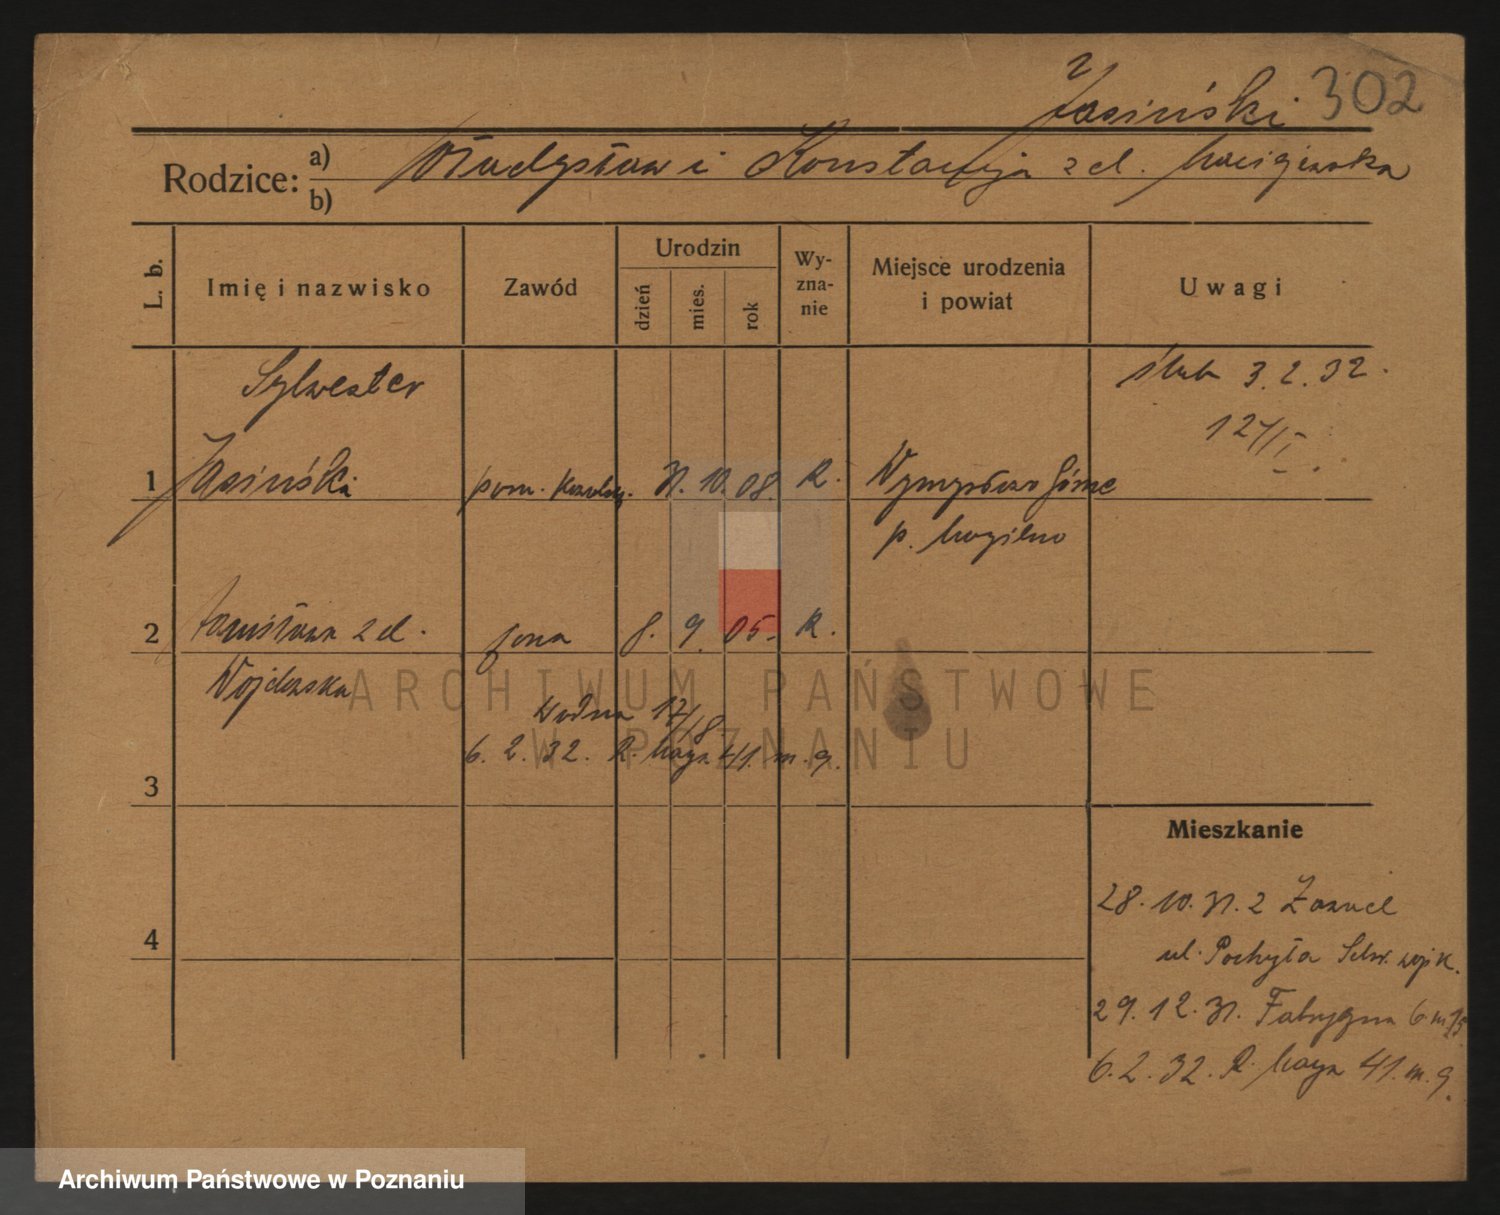 Jasiński 302
Rodzice: a) Władysław i Konstancja z d.
b)
L. b.
Imię i nazwisko
Zawód
Urodzin
dzień
mies.
rok
Wy-
zna-
nie
Miejsce urodzenia
i powiat
Uwagi
Sylwester
ślub 3.2.32.
1 Jasiński pom. 31. 10. 08. R. Wymysłowo Górne
p. Mogilno
2 z d. żona 8. 9. 05. R.
Wodna 17/18
6. 2. 32. R. Maya 41. m. 9.
3
Mieszkanie
28. 10. 31. z
4
ul. Pochyła
29. 12. 31. Fabryczna 6 m
6. 2. 32. R. Maya 41. m. 9.
ARCHIWUM PAŃSTWOWE
W POZNANIU
Archiwum Państwowe w Poznaniu